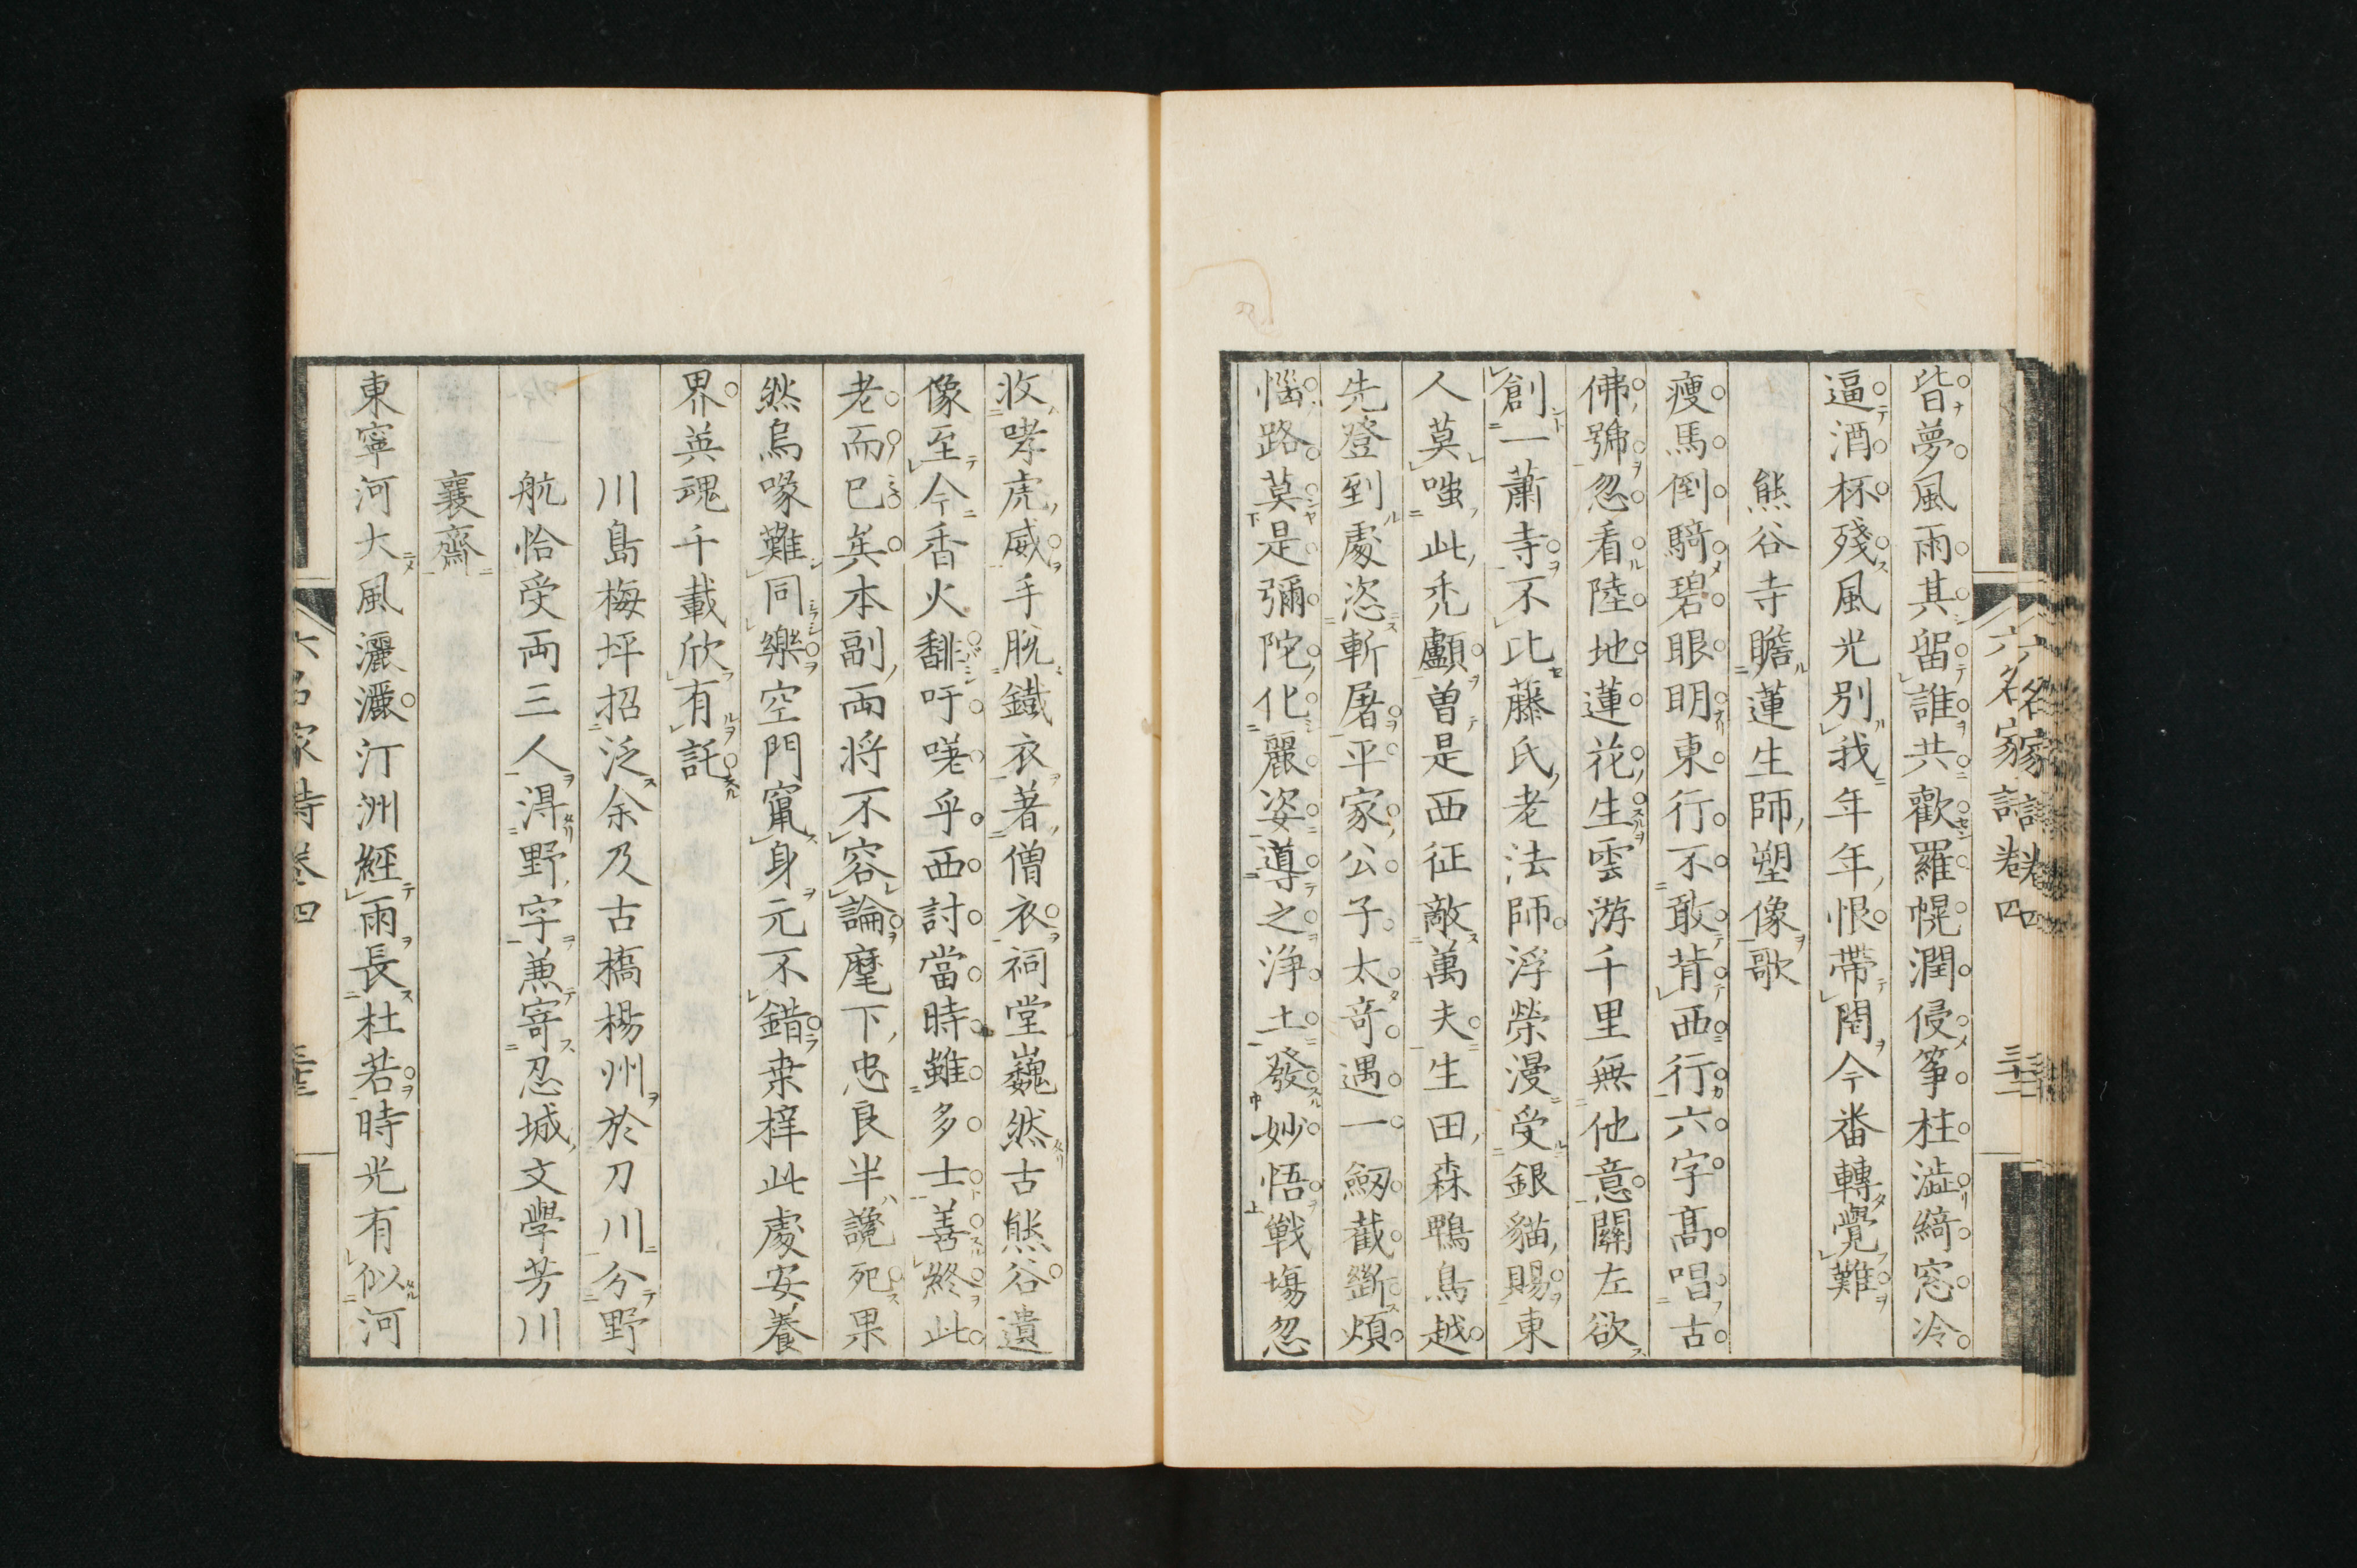 皆夢風雨其留誰共歡羅幌潤侵筝柱澁綺窓冷
逼酒杯殘風光別我年年恨帶閏今番轉覺難
熊谷寺瞻蓮生師塑像歌
瘦馬倒騎碧眼明東行不敢背西行六字髙唱古
佛號忽看陸地蓮花生雲游千里無他意闢左欲
創一蕭寺不比藤氏老法師浮榮漫受銀貓賜東
人莫嗤此禿顱曽是西征敵萬夫生田森鴨鳥越
先登到處恣斬屠平家公子太竒遇一劔截斷煩
惱路莫是彌陀化麗姿導之浄土發妙悟戦塲忽
收哮虎威手脫鐵衣著僧衣祠堂巍然古熊谷遺
像至今香火馡吁嗟乎西討當時雖多士善終此
老而已矣本副兩将不容論麾下忠良半讒死果
然烏喙難同樂空門竄身元不錯桒梓此處安養
界英魂千載欣有託
川島梅坪招泛余及古橋楊州於刀川分野
航恰受兩三人淂野字兼寄忍城文學芳川
襄齋
東寧河大風灑灑汀洲經雨長杜若時光有似河
六名家詩卷四